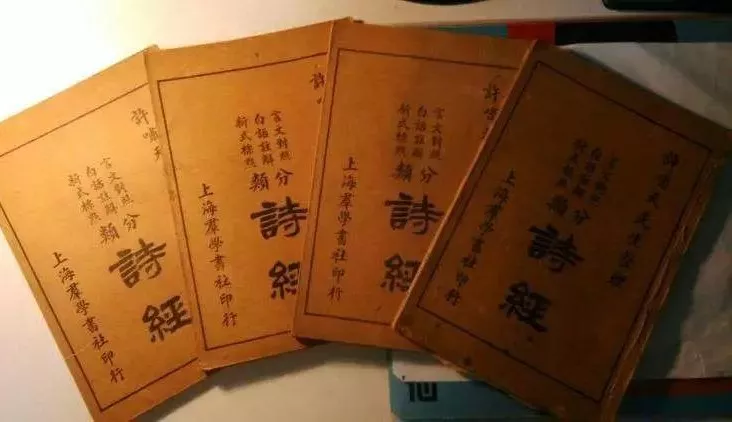 許嘯天
言文對照
白話註解
新式標點
分類
詩經
上海羣學書社印行
許嘯
言文對照
白話註解
新式標點
分類
詩經
上海羣學書社印行
許嘯天
言文對照
白話註解
新式標點
分類
詩經
上海羣學書社印行
許嘯天先生整理
言文對照
白話註解
新式標點
分類
詩經
上海羣學書社印行